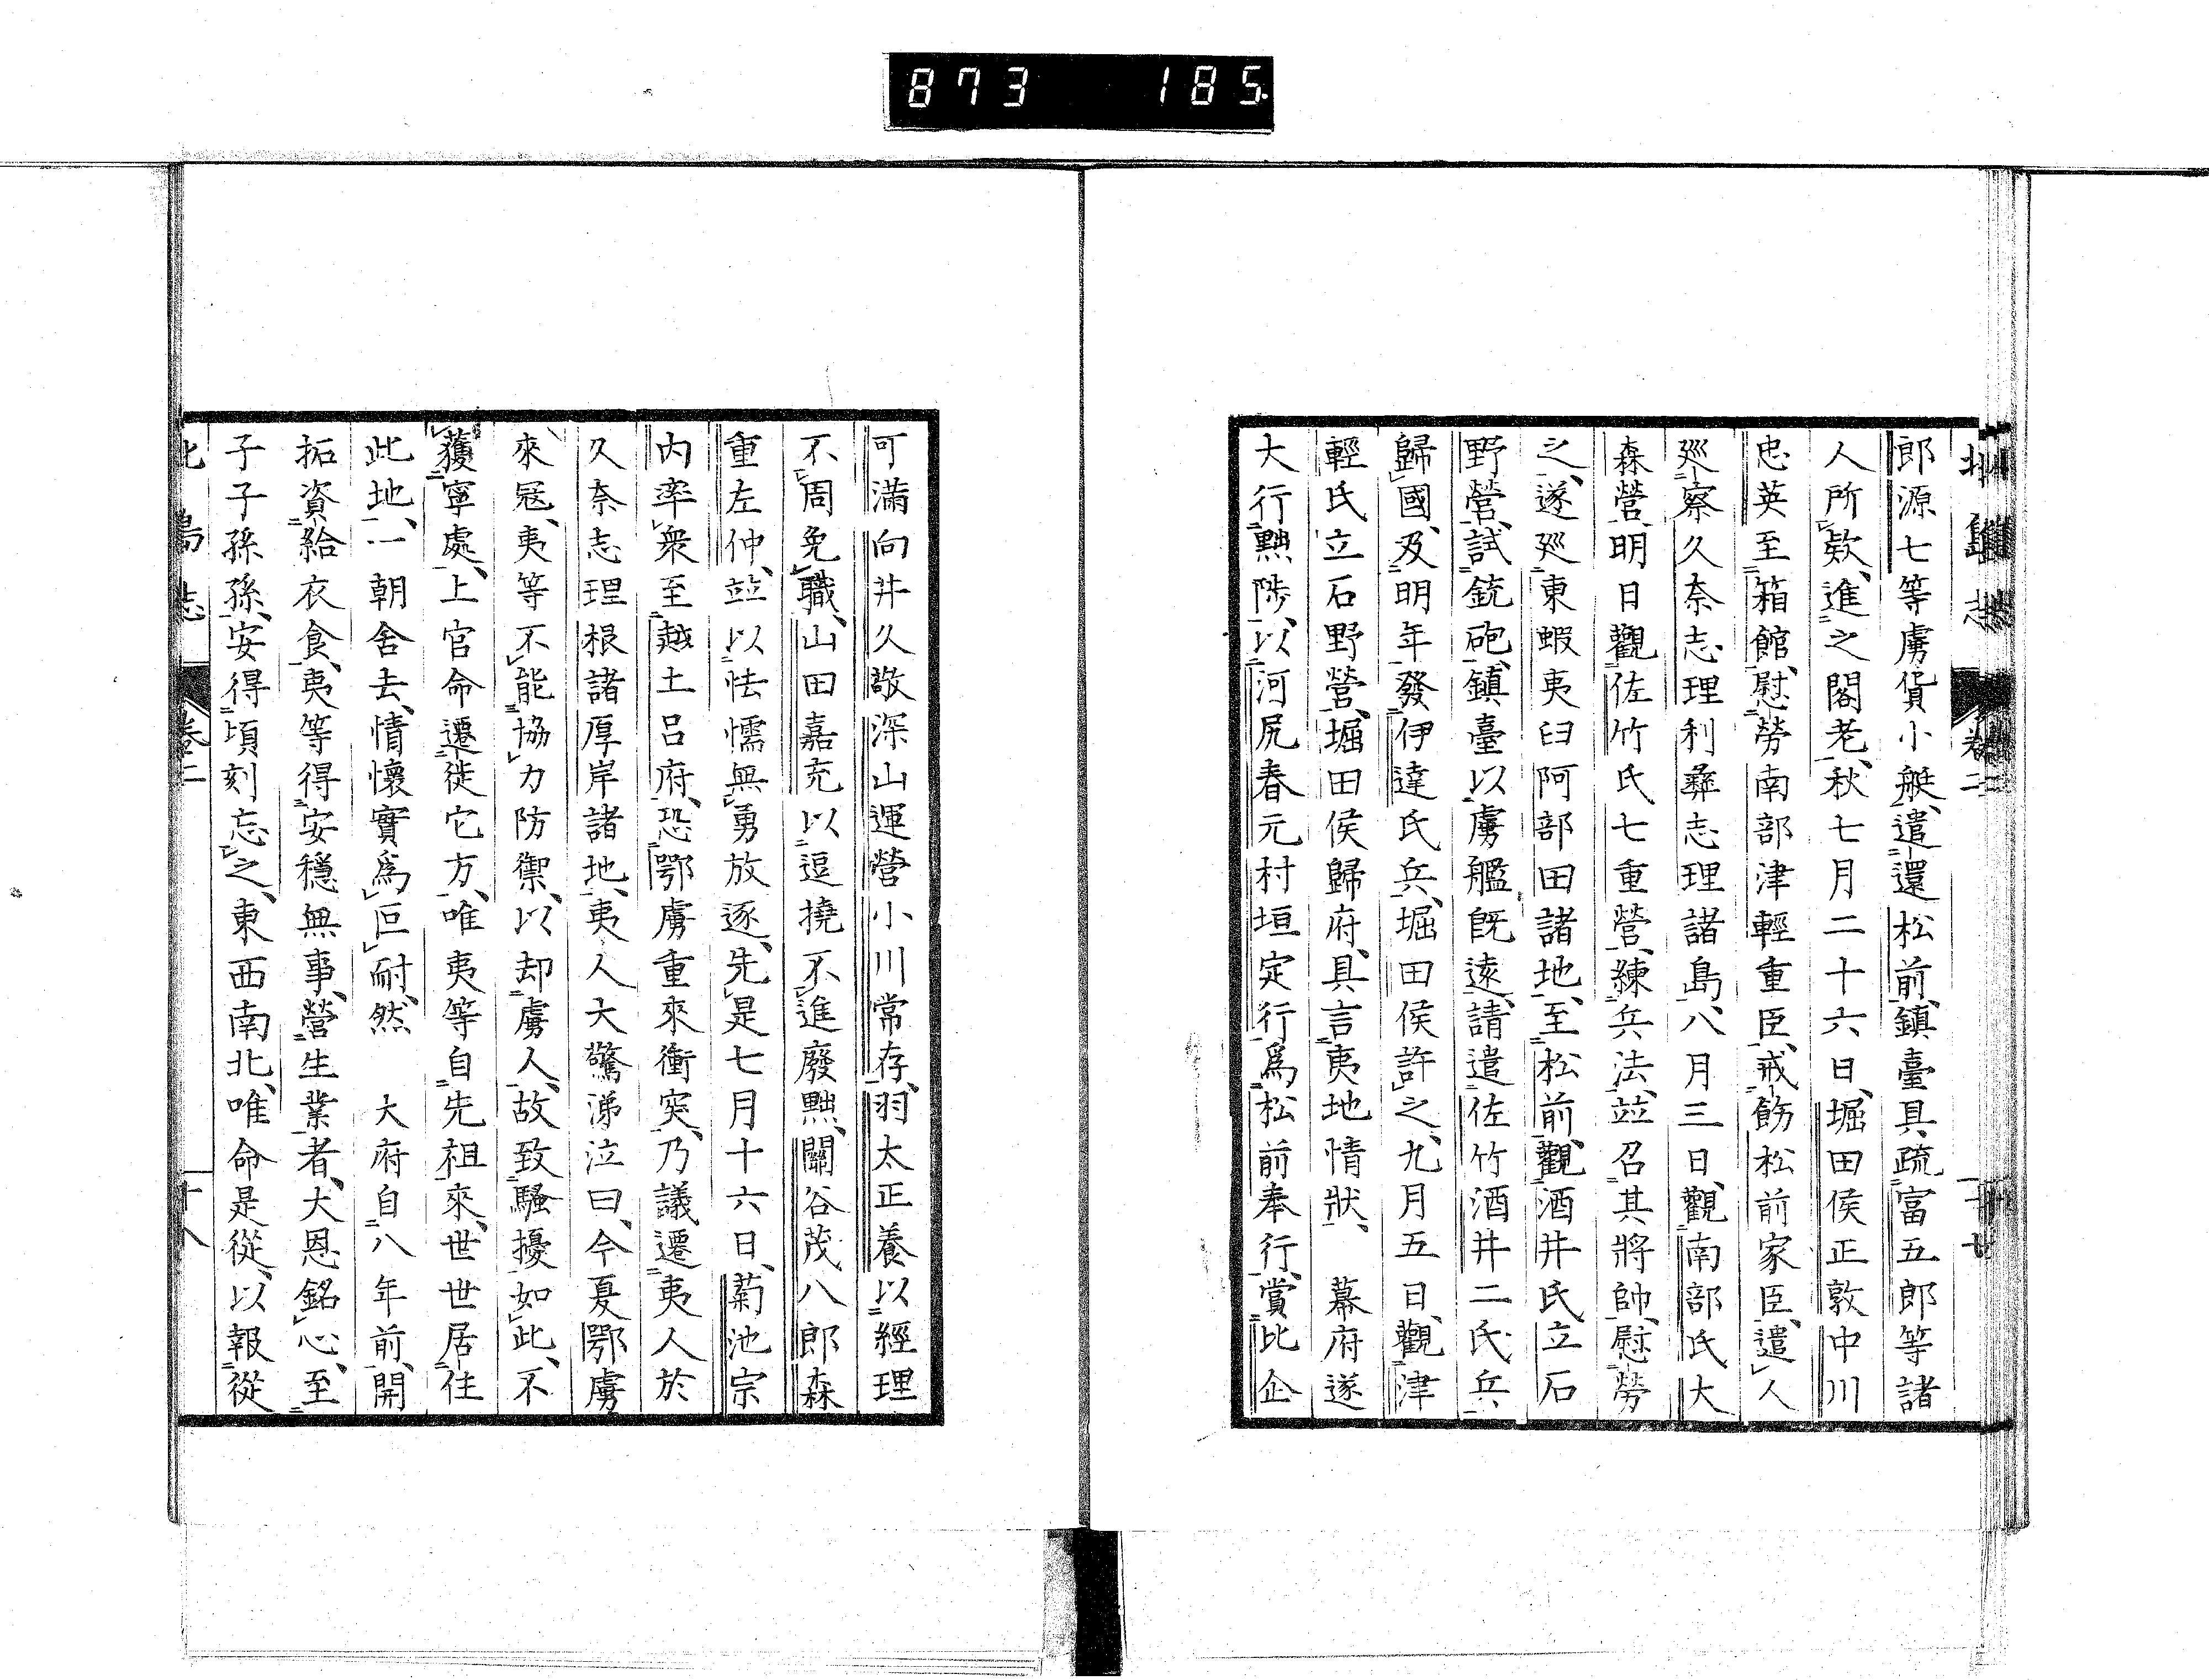 873 185
郎源七等虜貨小艇、遣還松前、鎮臺具疏富五郎等諸
人所欵、進之閣老、秋七月二十六日、堀田侯正敦中川
忠英至箱館、慰勞南部津輕重臣、戒飭松前家臣、遣人
廵察久奈志理利彛志理諸島、八月三日、觀南部氏大
森營、明日觀佐竹氏七重營、練兵法、竝召其將帥、慰勞
之、遂廵東蝦夷臼阿部田諸地、至松前、觀酒井氏立石
野營、試銃砲、鎮臺以虜艦既遠、請遣佐竹酒井二氏兵
歸國、及明年發伊達氏兵、堀田侯許之、九月五日、觀津
輕氏立石野營、堀田侯歸府、具言夷地情狀、 幕府遂
大行黜陟、以河尻春元村垣定行爲松前奉行、賞比企
可滿向井久敬深山運營小川常存、羽太正養以經理
不周免職、山田嘉充以逗撓不進廢黜、關谷茂八郎森
重左仲、竝以怯懦無勇放逐、先是七月十六日、菊池宗
内率衆至越土呂府、恐鄂虜重來衝突、乃議遷夷人於
久奈志理根諸厚岸諸地、夷人大驚涕泣曰、今夏鄂虜
來寇、夷等不能協力防禦、以却虜人、故致騷擾如此、不
獲寧處、上官命遷徙它方、唯夷等自先祖來、世世居住
此地、一朝舍去、情懷實爲叵耐、然 大府自八年前、開
拓資給衣食、夷等得安穩無事、營生業者、大恩銘心、至
子子孫孫、安得頃刻忘之、東西南北、唯命是從、以報從
卷二
十八